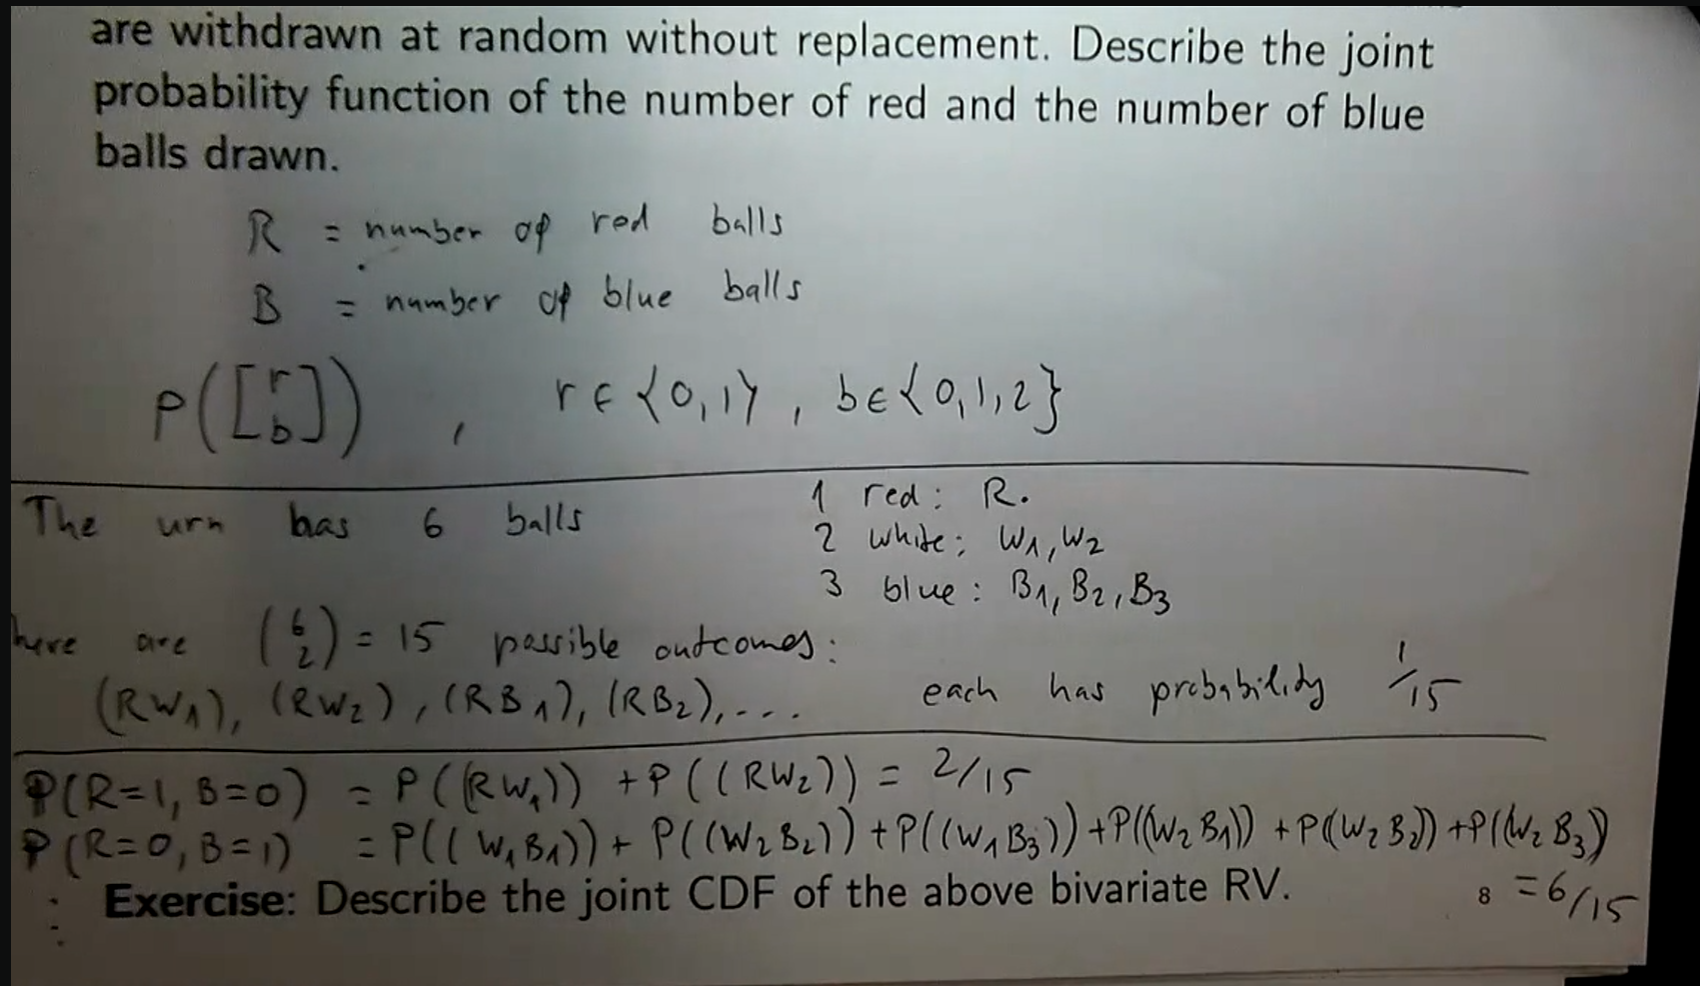 are withdrawn at random without replacement. Describe the joint
probability function of the number of red and the number of blue
balls drawn.
R = number of red balls
B = number of blue balls
P([r b]) , r ∈ {0,1} , b ∈ {0,1,2}
The urn has 6 balls
1 red: R.
2 white: W1, W2
3 blue: B1, B2, B3
here are (6 2) = 15 possible outcomes:
(RW1), (RW2), (RB1), (RB2),.... each has probability 1/15
P(R=1, B=0) = P((RW1)) + P((RW2)) = 2/15
P(R=0, B=1) = P((W1B1)) + P((W2B2)) + P((W1B3)) + P((W2B1)) + P((W2B2)) + P((W2B3))
Exercise: Describe the joint CDF of the above bivariate RV.
8 = 6/15